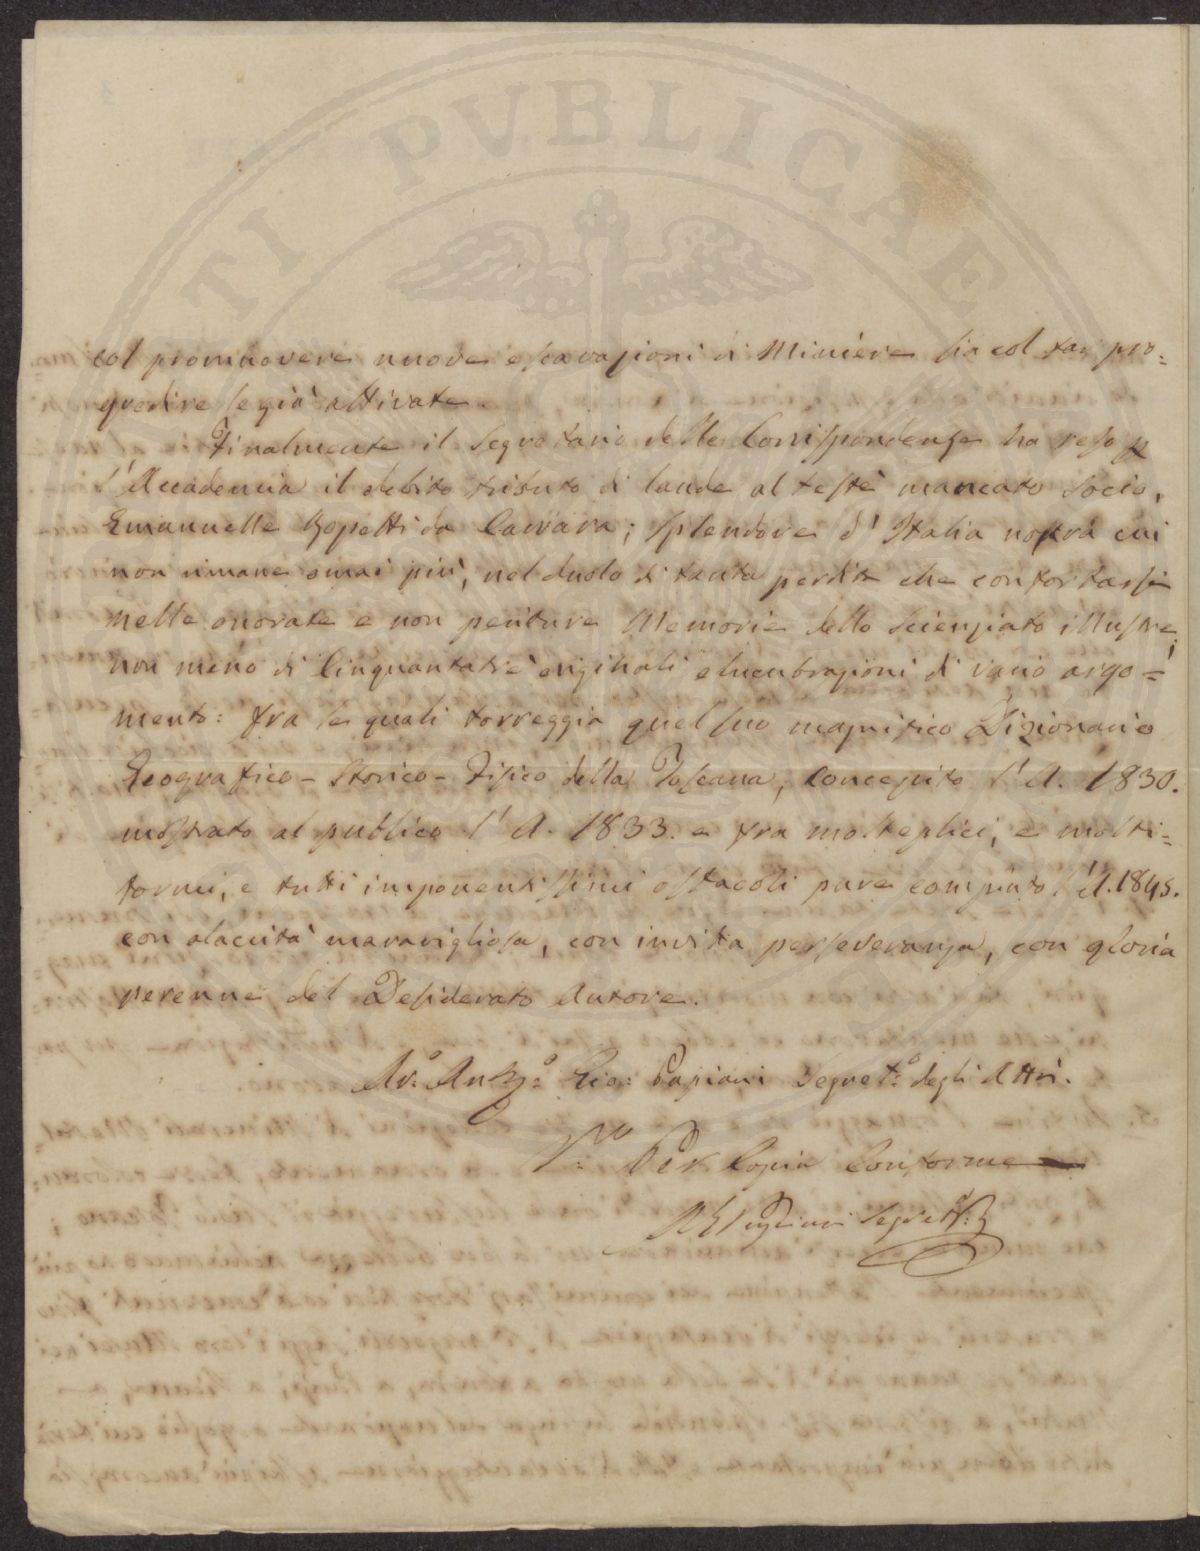 TI PVBLICAE
col promuovere nuove escavazioni di Miniere sia col far pro=
gredire le già attivate.
Finalmente il Segretario delle Corrispondenze ha reso
l'Accademia il debito tributo di laude al testè mancato Socio,
Emanuelle Repetti da Carrara; splendore d'Italia nostra cui
non rimane omai più, nel duolo di tanta perdita che confortarsi
nelle onorate e non periture Memorie dello Scienziato illustre,
non meno di Cinquantatrè originali elucubrazioni di vario argo=
mento: fra le quali torreggia quel suo magnifico Dizionario
Geografico-Storico-Fisico della Toscana, concepito l'A. 1830.
mostrato al publico l'A. 1833. e fra molteplici, e molti=
formi, e tutti imponentissimi ostacoli pure compiuto l'A. 1845.
con alacrità maravigliosa, con invitta perseveranza, con gloria
perenne del Desiderato Autore.
Gio: Segret:º degli Atti.
Per Copia Conforme
Segret:º